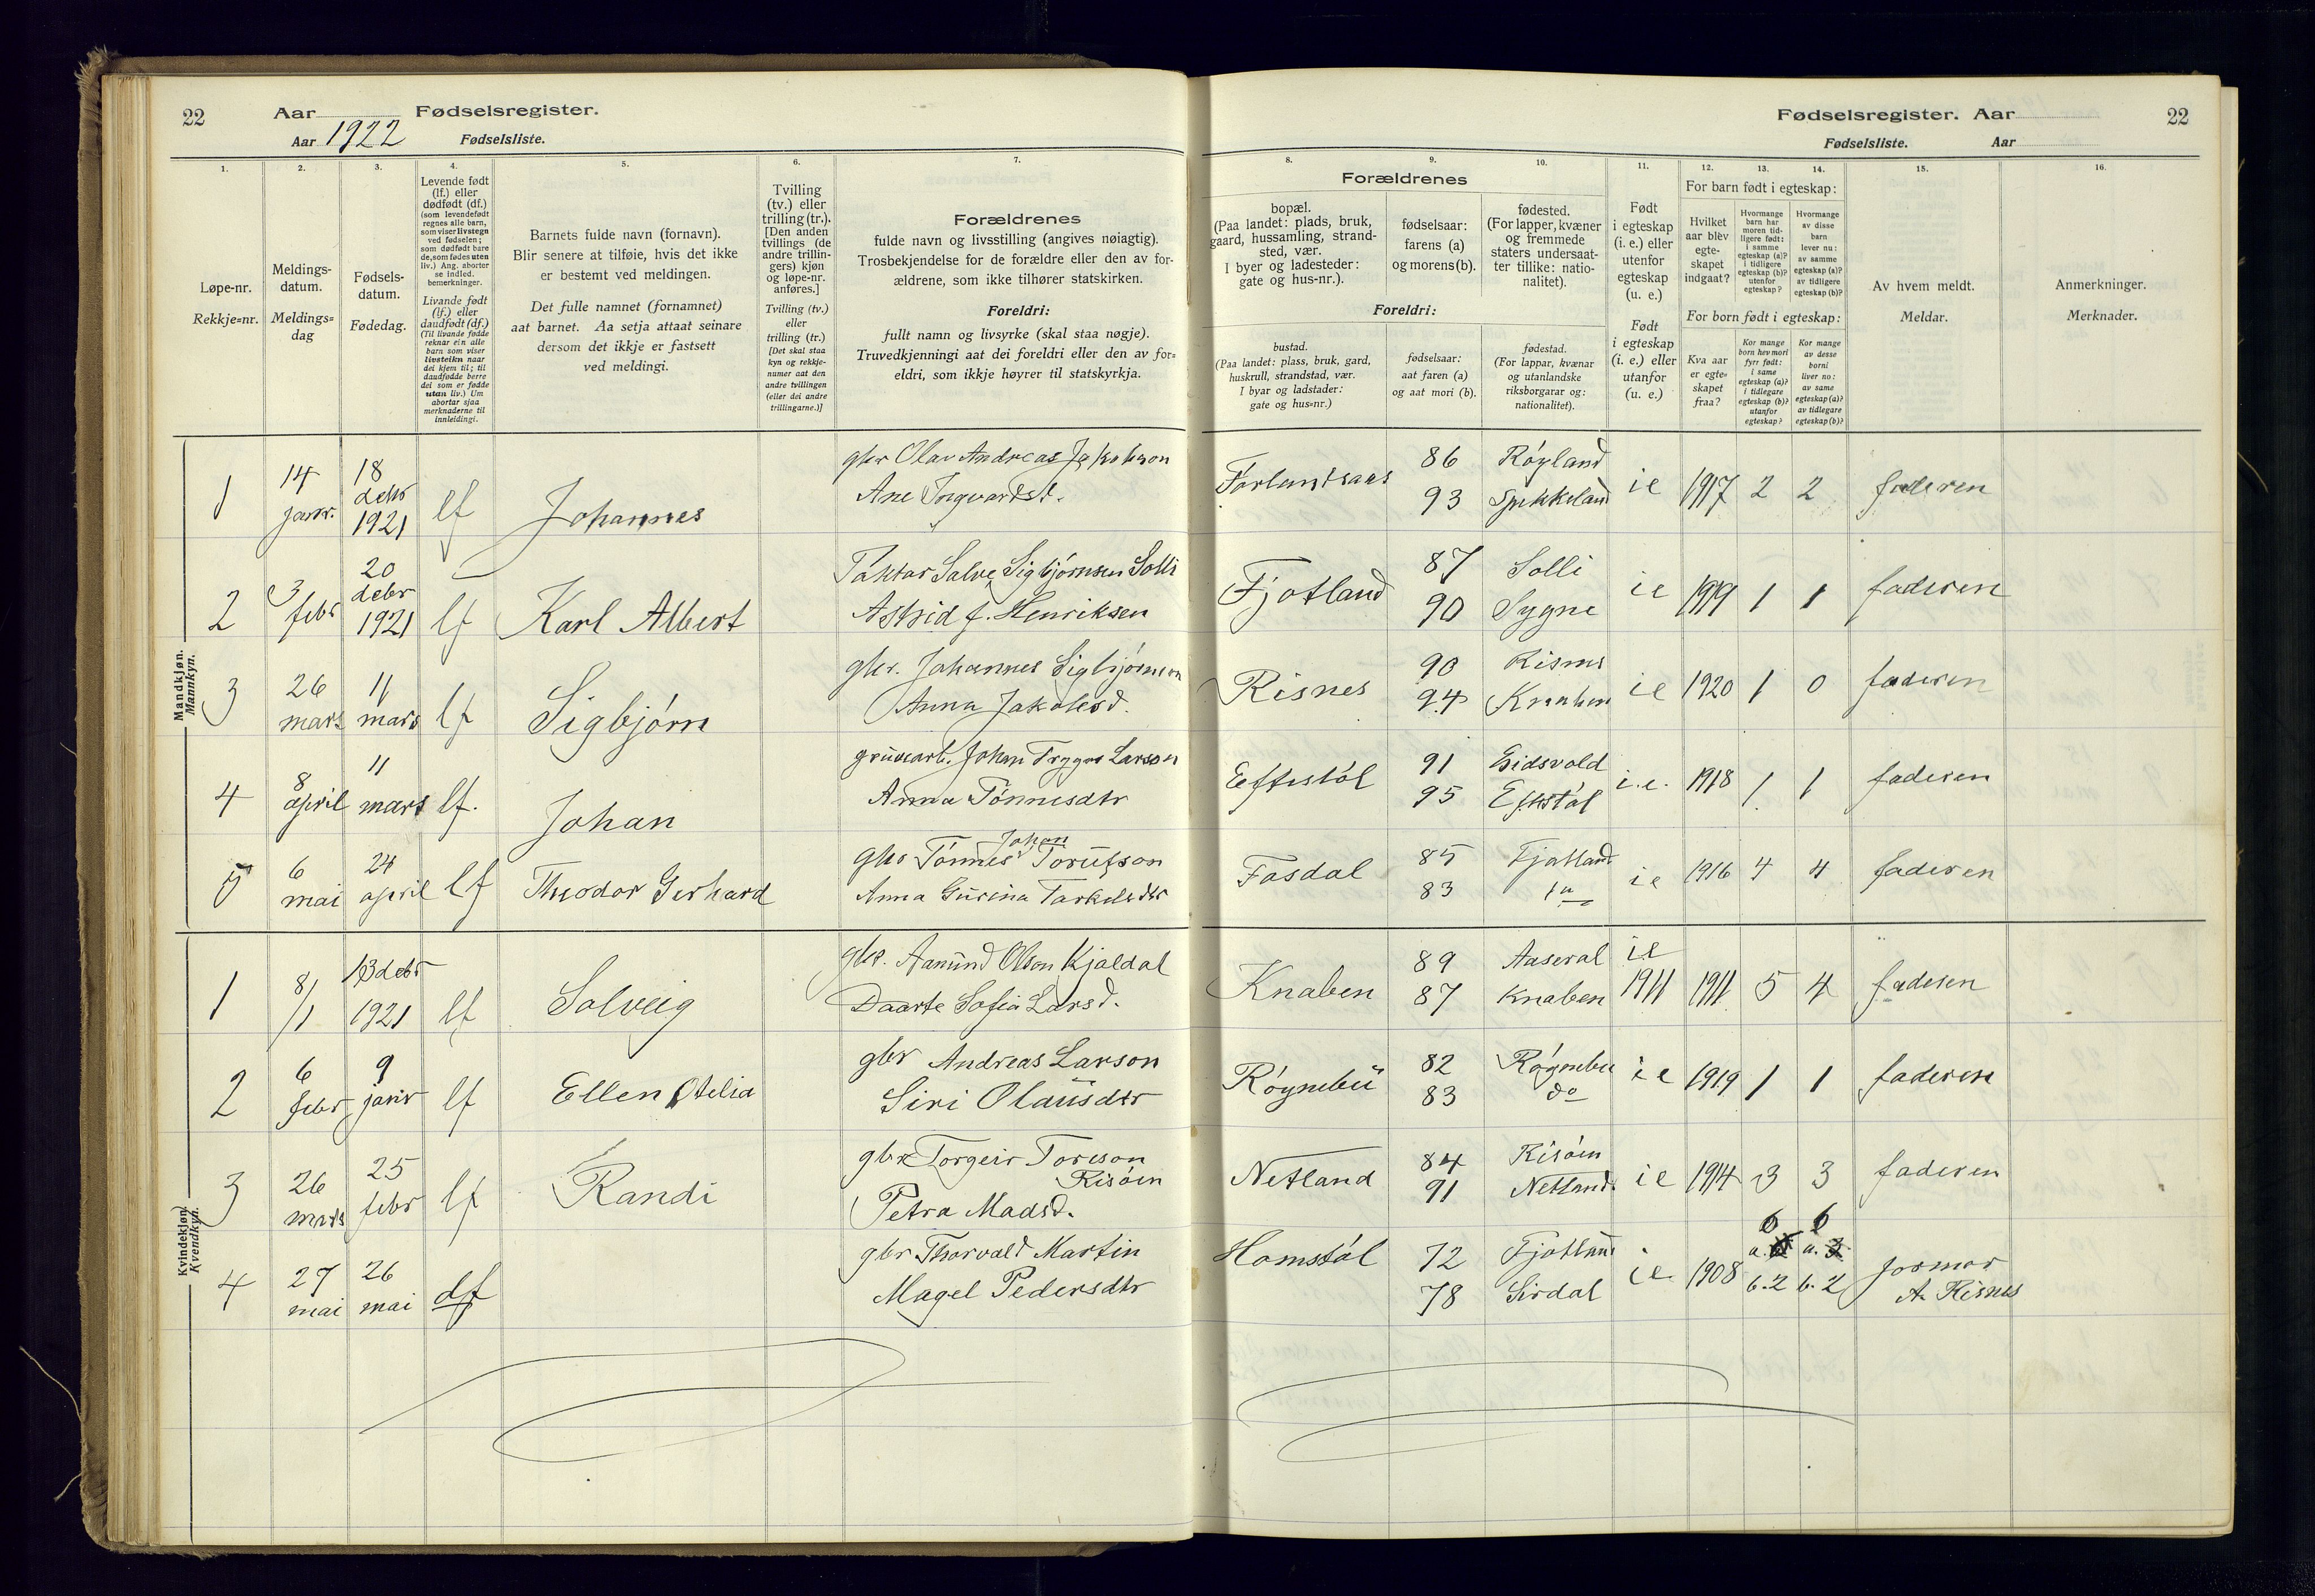 22 Aar Fødselsregister.
Aar 1922 Fødselsliste.
Fødselsregister. Aar 22
Fødselsliste. Aar
1.
Løpe-nr.
Rekkje=nr.
2.
Meldings-
datum.
Meldings=
dag
3.
Fødsels-
datum.
Fødedag.
4.
Levende født
(lf.) eller
dødfødt (df.)
(som levendefødt
regnes alle barn,
som viser livstegn
ved fødselen;
som dødfødt bare
de, som fødes uten
liv.) Ang. aborter
se indled.
bemerkninger.
Livande født
(lf.) eller
daudfødt (df.)
(Til livande fødde
reknar ein alle
barn som viser
livsteikn naar
dei kjem til; til
daudfødde berre
dei som er fødde
utan liv.) Um
abortar sjaa
merknaderne til
innleidingi.
5.
Barnets fulde navn (fornavn).
Blir senere at tilføie, hvis det ikke
er bestemt ved meldingen.
Det fulle namnet (fornamnet)
aat barnet. Aa setja attaat seinare
dersom det ikkje er fastsett
ved meldingi.
6.
Tvilling
(tv.) eller
trilling (tr.).
[Den anden
tvillings (de
andre trillin-
gers) kjøn
og løpe-nr.
anføres.]
Tvilling (tv.)
eller
trilling (tr.)
[Det skal staa
kyn og rekkje-
numer aat den
andre tvillingen
(eller dei andre
trillingarne.)]
7.
Forældrenes
fulde navn og livsstilling (angives nøiagtig).
Trosbekjendelse for de forældre eller den av for-
ældrene, som ikke tilhører statskirken.
Foreldri:
fullt namn og livsyrke (skal staa nøgje).
Truvedkjenningi aat dei foreldri eller den av for=
eldri, som ikkje høyrer til statskyrkja.
8.
Forældrenes
bopæl.
(Paa landet: plads, bruk,
gaard, hussamling, strand-
sted, vær.
I byer og ladesteder:
gate og hus-nr.).
Foreldri:
bustad.
(Paa landet: plass, bruk, gard,
huskrull, strandstad, vær.
I byar og ladstader:
gate og hus=nr.)
9.
fødselsaar:
farens (a)
og morens (b).
fødselsaar:
aat faren (a)
og aat mori (b).
10.
fødested.
(For lapper, kvæner
og fremmede
staters undersaat-
ter tillike: natio-
nalitet).
fødestad.
(For lappar, kvænar
og utanlandske
riksborgarar og:
nationalitet).
11.
Født
i egteskap
(i. e.) eller
utenfor
egteskap
(u. e.)
Født
i egteskap
(i. e.) eller
utanfor
(u. e.)
For barn født i egteskap:
12.
Hvilket
aar blev
egte-
skapet
indgaat?
13.
Hvormange
barn har
moren tid-
ligere født:
i samme
egteskap (a)?
i tidligere
egteskap (b)?
utenfor
egteskap?
14.
Hvormange
av disse
barn
lever nu:
av samme
egteskap (a)?
av tidligere
egteskap (b)?
For born født i egteskap:
Kva aar
er egte=
skapet
fraa?
Kor mange
born hev mori
fyrr født:
i same
egteskap (a)?
i tidlegare
egteskap (b)?
utanfor
egteskap?
Kor mange
av desse
borni
liver no:
av same
egteskap (a)?
av tidlegare
egteskap (b)?
15.
Av hvem meldt.
Meldar.
16.
Anmerkninger.
Merknader.
Mandkjøn.
Mannkyn.
1 14 janr. 18 debr 1921 lf Johannes
gbr Olav Andreas Jakobson
Ane Ingvardsd.
86 Røyland
93 ie 1917 2 2 faderen
2 3 febr 20 debr 1921 lf Karl Albert
Salve Sigbjørnsen Solli
Astrid f. Henriksen
Fjotland 87 Solli
90 Sygne ie 1919 1 1 faderen
3 26 mars 11 mars lf Sigbjørn
gbr. Johannes Sigbjørnson
Anna Jakobsd.
Risnes 90 Risnes
94 Knaben ie 1920 1 0 faderen
4 8 april 11 mars lf. Johan
gruvearb. Johan Trygve Larson
Anna Tønnesdtr
Eftestøl 91 Eidsvold
95 Eftestøl i.e. 1918 1 1 faderen
5 6 mai 24 april lf Theodor Gerhard
Johan
gbr Tønnes
Anna Gurina
85 Fjotland
83 ie 1916 4 4 faderen
Kvindekjøn.
Kvendkyn.
1 8/1 13 debr 1921 lf Solveig
gbr. Aanund Olson Kjaldal
Daarte Sofia Larsd.
Knaben 89 Aaseral ie
87 Knaben 1911 1911 5 4 faderen
2 6 febr 9 janr lf Ellen Otelia
gbr Andreas Larson
Siri Olausdtr
Røynebu 82 Røynebu
83 do ie 1919 1 1 faderen
3 26 mars 25 febr lf Randi
gbr Torgeir Toreson
Risøien
Petra Madsd.
Netland 84 Risøien
91 Netland ie 1914 3 3 faderen
4 27 mai 26 mai df
gbr Thorvald Martin
Magel Pedersdtr
Homstøl 72 Fjotland
78 Sirdal ie 1908
6 6
a. a.
b.2 b.2
jormor
A. Risnes